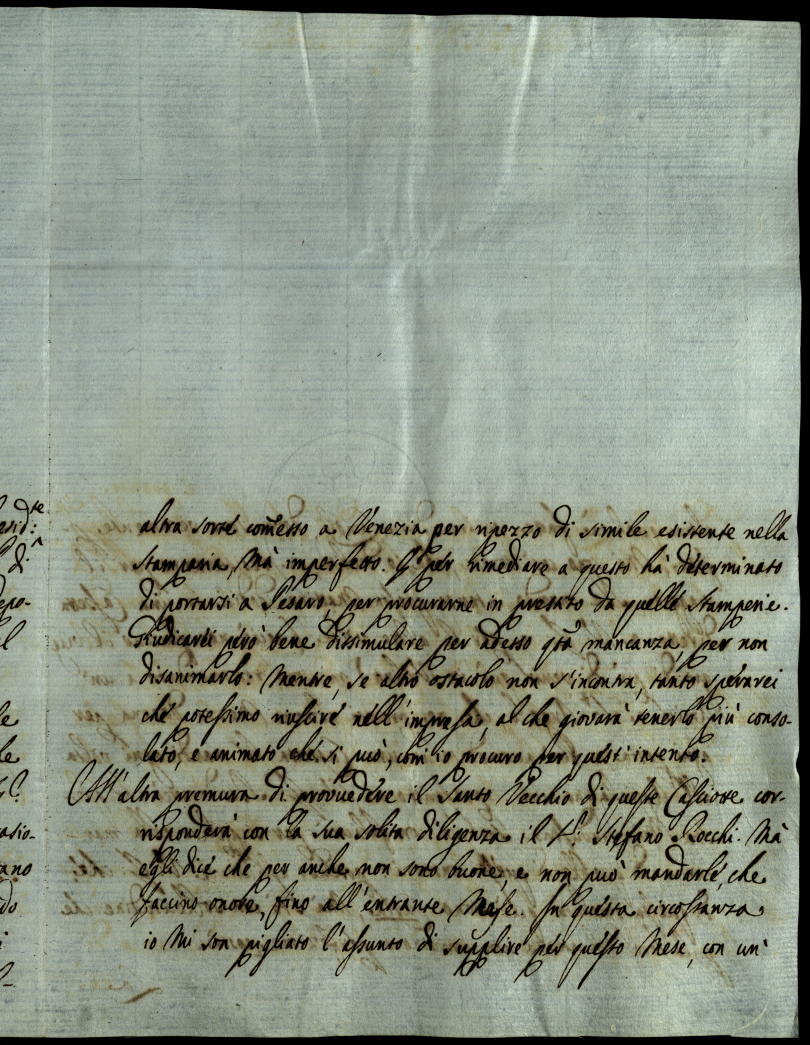 altra sorte comesso a Venezia per ripezzo di simile esistente nella
Stamparia, Mà imperfetto. per rimediare a questo hà determinato
di portarsi a Pesaro, per procurarne in prestito da quelle Stamperie.
Giudicarei però bene dissimulare per adesso qta mancanza, per non
disanimarlo: Mentre, se altro ostacolo non s'incontra, tanto sperarei
che potessimo riuscire nell'impresa, al che giovarà tenerlo più conso-
lato, e animato che si può, com'io procuro per quest'intento.
All'altra premura di provvedére il Santo Vecchio di queste Casciotte cor-
risponderà con la sua solita diligenza il Sr. Stefano Rocchi. Mà
egli dice che per anche non sono buone, e non può mandarle, che
faccino onore, fino all'entrante Mese. In questa circostanza
io Mi son pigliato l'assunto di supplire per questo Mese, con un'